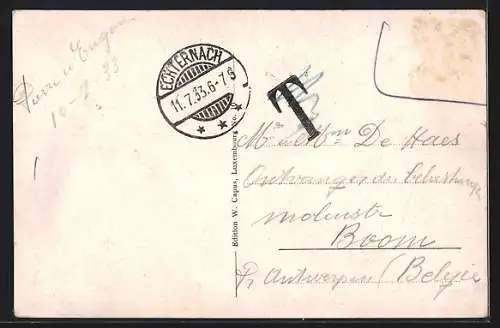 Pierre Eugen
10-7-33
ECHTERNACH
11.7.33.6-7
T
Edition W. Capus, Luxembourg
Mr et Mm De Haes
molenstr
Boom
Pr Antwerpen (Belgie